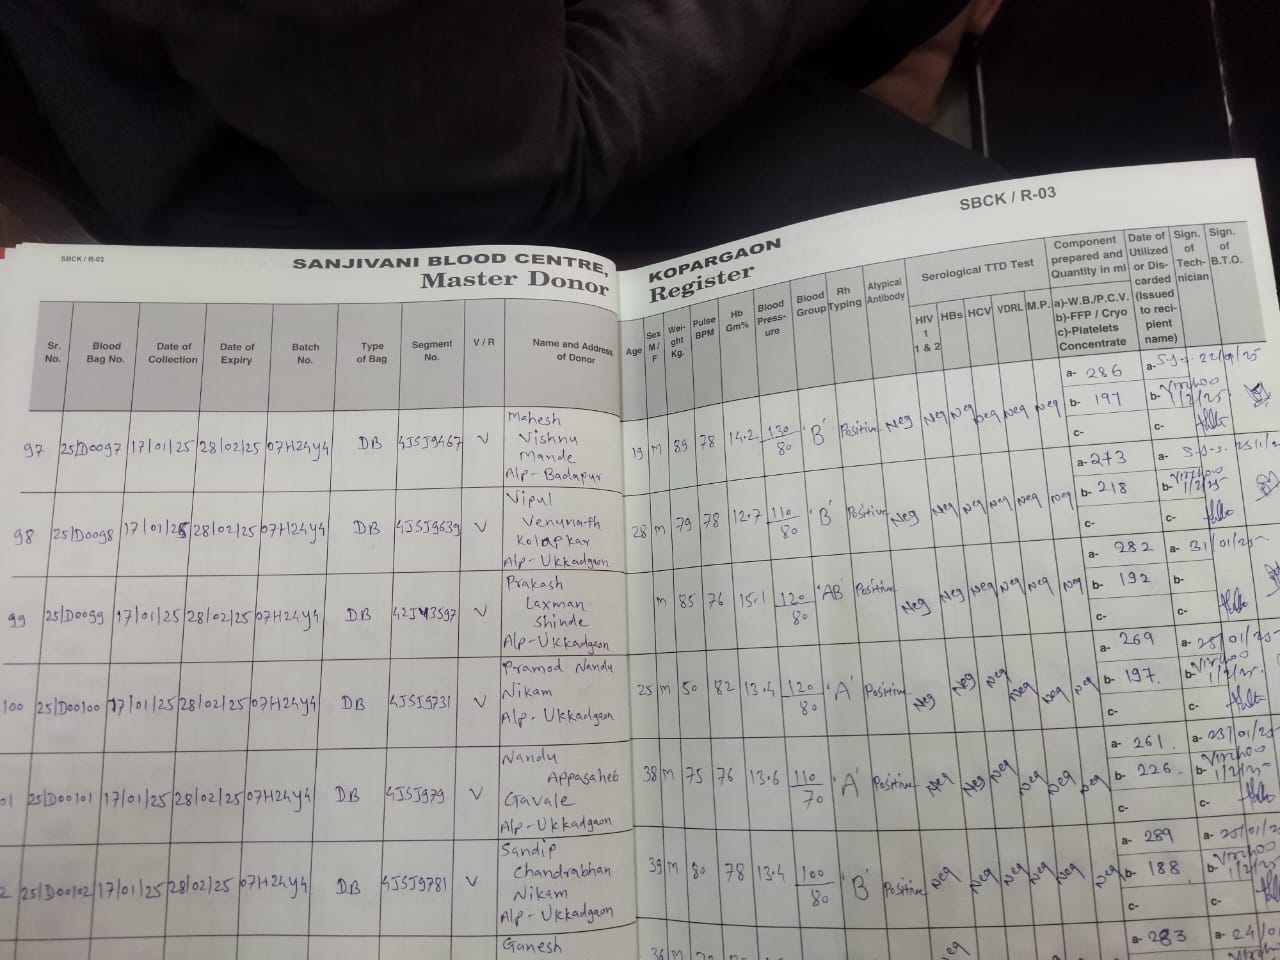 SBCK / R-03
SBCK / R-03
SANJIVANI BLOOD CENTRE, KOPARGAON
Master Donor Register
Sr. No. Blood Bag No. Date of Collection Date of Expiry Batch No. Type of Bag Segment No. V / R Name and Address of Donor Age Sex M / F Wei-ght Kg. Pulse BPM Hb Gm% Blood Press-ure Blood Group Rh Typing Atypical Antibody Serological TTD Test HIV 1 1 & 2 HBs HCV VDRL M.P. Component prepared and Quantity in ml a)-W.B./P.C.V. b)-FFP / Cryo c)-Platelets Concentrate Date of Utilized or Dis-carded (Issued to reci-pient name) Sign. of Tech-nician Sign. of B.T.O.
97 25/D0097 17/01/25 28/02/25 07H24Y4 DB 4J5J9467 V Mahesh Vishnu Mande A/p- Badapur 19 M 89 78 14.2 130/80 'B' Positive Neg Neg Neg Neg Neg Neg a- 286 b- 197 c- a- b- 1/2/25 c-
98 25/D0098 17/01/25 28/02/25 07H24Y4 DB 4J5J9639 V Vipul Venunath Kolapkar A/p- Ukkadgaon 28 M 79 78 12.7 110/80 'B' Positive Neg Neg Neg Neg Neg Neg a- 273 b- 218 c- a- b- 1/2/25 c-
99 25/D0099 17/01/25 28/02/25 07H24Y4 DB V Prakash Laxman Shinde A/p- Ukkadgaon M 85 76 15.1 120/80 'AB' Positive Neg Neg Neg Neg Neg Neg a- 282 b- 192 c- a- 31/01/25 b- c-
100 25/D00100 17/01/25 28/02/25 07H24Y4 DB 4J5J9731 V Pramod Nandu Nikam A/p- Ukkadgaon 25 M 50 82 13.4 120/80 'A' Positive Neg Neg Neg Neg Neg Neg a- 269 b- 197. c- a- b- 1/2/25. c-
01 25/D00101 17/01/25 28/02/25 07H24Y4 DB 4J5J979 V Nandu Appasaheb Gavale A/p- Ukkadgaon 38 M 75 76 13.6 110/70 'A' Positive Neg Neg Neg Neg Neg Neg a- 261. b- 226. c- a- b- 1/2/25 c-
2 25/D00102 17/01/25 28/02/25 07H24Y4 DB 4J5J9781 V Sandip Chandrabhan Nikam A/p- Ukkadgaon 39 M 80 78 13.4 100/80 'B' Positive Neg Neg Neg Neg Neg Neg a- 289 b- 188 c- a- b- 1/2/25 c-
Ganesh 36 M Neg a- 283 a-